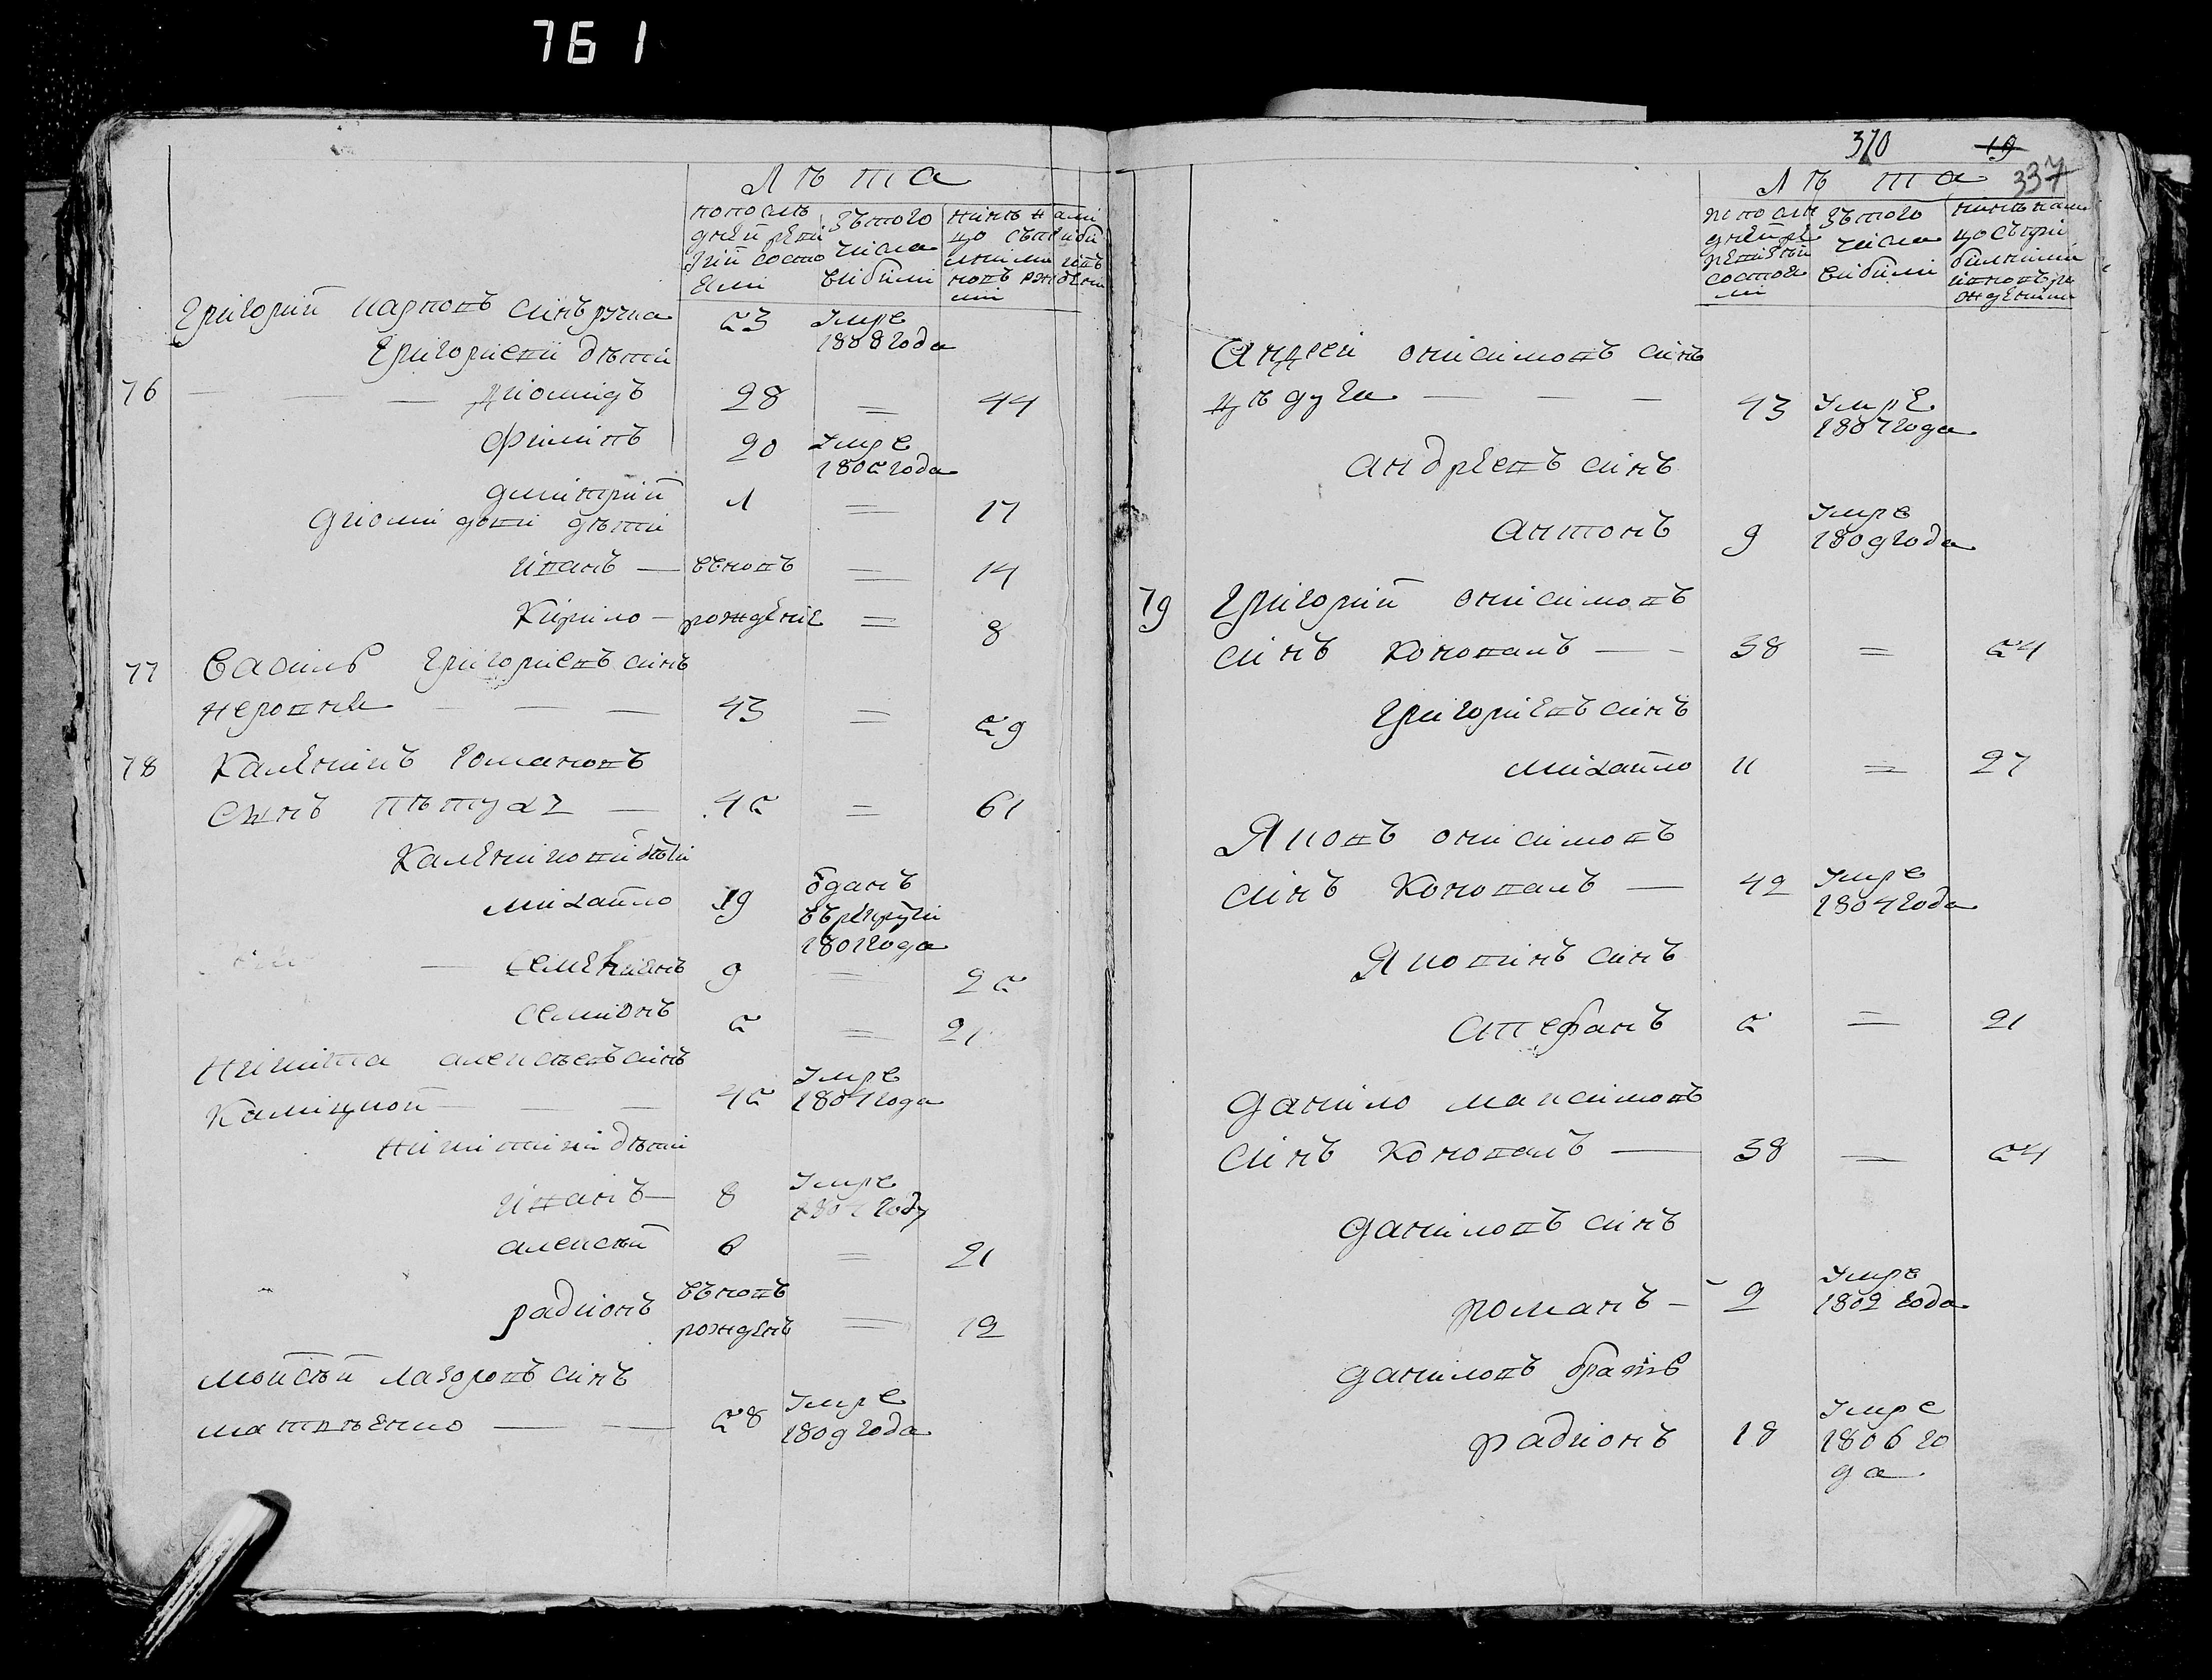 761
Лѣта
по послѣ
дней реви
зии состо
яли
Зъ того
числа
вибили
нинѣ на ли
цо съ приби
лыми и въ
новь рожденн
ими
Григорий карповъ синъ ручка
53
Умре
1808 года
Григориеви дѣти
76
Диомидъ
28
=
44
Филипъ
20
Умре
1805 года
Дмитрий
1
=
17
Диомидови дѣти
Иванъ —
въновъ
=
14
Кирило —
рождение
=
8
77
Василь Григориевъ синъ
неровня
43
=
59
78
Каленикъ романовъ
Синъ пѣтухъ —
45
=
61
Каленикови дѣти
михайло
19
Оданъ
въ рекрути
1801 года
Семениянъ
9
=
25
Семионъ
5
=
21
Никита алексѣевъ синъ
Камицкой
45
Умре
1804 года
никитини дѣти
иванъ —
8
Умре
году
алексѣй
6
=
21
радионъ
въновь
рожденъ
=
12
мойсѣй лазоровъ синъ
матвѣенко
58
Умре
1809 года
370
19
337
Лѣта
по послѣ
дней ре
ревизии
состоя
ли
Зъ того
числа
вибили
нинѣ на ли
цо съ при
билими
и вновь ро
жденими
Андреи онисимовъ синъ
Цѣдула
43
Умре
1807 года
андреевъ синъ
антонъ
9
Умре
1809 года
79
Григорий онисимовъ
синъ Коновалъ —
38
=
54
Григориевъ синъ
михайло
11
=
27
Яковъ онисимовъ
синъ Коновалъ —
42
Умре
1804 года
Яковинъ синъ
Степанъ
5
=
21
Данило максимовъ
синъ Коновалъ —
38
=
54
Даниловъ синъ
романъ —
2
Умре
1802 года
Даниловъ братъ
радионъ
18
Умре
1806 го
да